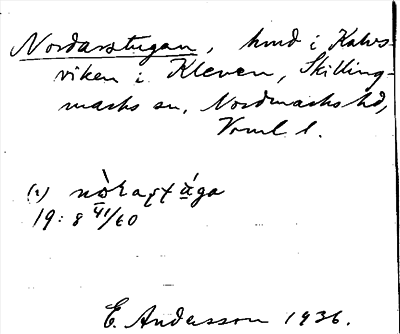 Nordarstugan, hmd i Kalvs-
viken i Kleven, Skilling-
marks sn, Nordmarks hd,
Vrml l.
(1)
19: 8 VI/60
E. Andersson 1936.